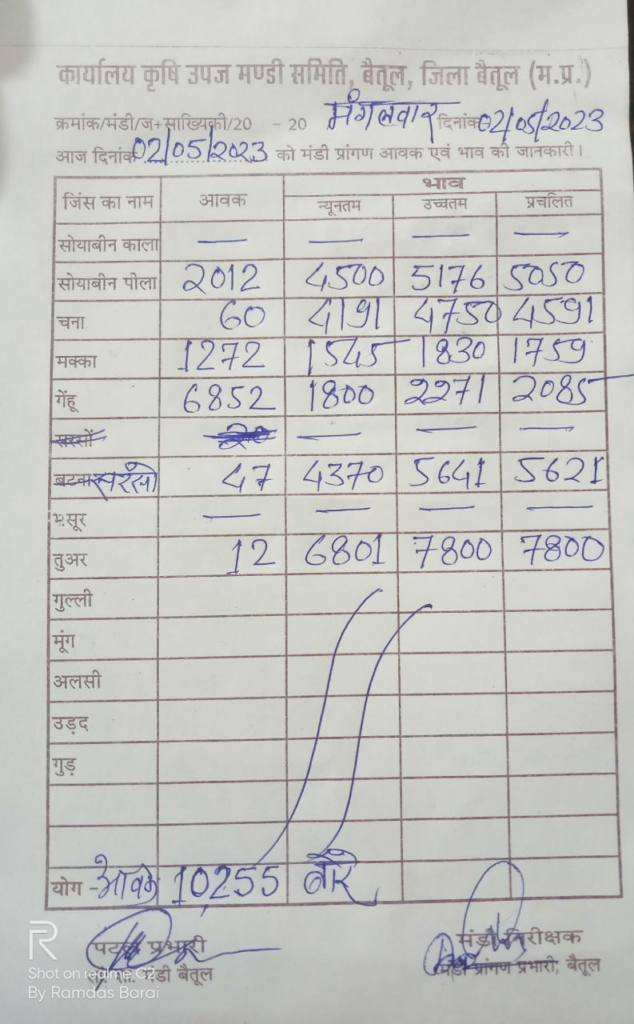 कार्यालय कृषि उपज मण्डी समिति, बैतूल, जिला बैतूल (म.प्र.)
क्रमांक/मंडी/ज+साख्यिकी/20 - 20 मंगलवार दिनांक 02/05/2023
आज दिनांक 02/05/2023 को मंडी प्रांगण आवक एवं भाव की जानकारी।
जिंस का नाम आवक भाव
न्यूनतम उच्चतम प्रचलित
सोयाबीन काला — — — —
सोयाबीन पीला 2012 4500 5176 5050
चना 60 4191 4750 4591
मक्का 1272 1545 1830 1759
गेंहू 6852 1800 2271 2085
सरसों — — —
बटना सरसों 47 4370 5641 5621
मसूर — — — —
तुअर 12 6801 7800 7800
गुल्ली
मूंग
अलसी
उड़द
गुड़
योग - आवक 10,255 बोरे
प्रभारी मंडी निरीक्षक
मंडी बैतूल प्रांगण प्रभारी, बैतूल
Shot on realme C2
By Ramdas Barai